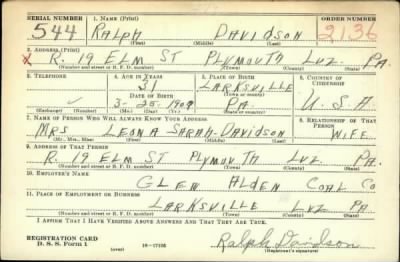 SERIAL NUMBER 1. NAME (Print) ORDER NUMBER
544 RALPH DAVIDSON 2136
(First) (Middle) (Last)
2. ADDRESS (Print)
X R. 19 ELM ST PLYMOUTH LUZ. PA.
(Number and street or R. F. D. number) (Town) (County) (State)
3. TELEPHONE 4. AGE IN YEARS 5. PLACE OF BIRTH 6. COUNTRY OF CITIZENSHIP
31 LARKSVILLE
DATE OF BIRTH (Town or county)
3-25-1909 PA. U.S.A.
(Exchange) (Number) (Mo.) (Day) (Yr.) (State or country)
7. NAME OF PERSON WHO WILL ALWAYS KNOW YOUR ADDRESS 8. RELATIONSHIP OF THAT PERSON
MRS LEONA SARAH-DAVIDSON WIFE
(Mr., Mrs., Miss) (First) (Middle) (Last)
9. ADDRESS OF THAT PERSON
R. 19 ELM ST PLYMOUTH LUZ PA.
(Number and street or R. F. D. number) (Town) (County) (State)
10. EMPLOYER'S NAME
GLEN ALDEN COAL CO
11. PLACE OF EMPLOYMENT OR BUSINESS
LARKSVILLE LUZ PA
(Number and street or R. F. D. number) (Town) (County) (State)
I AFFIRM THAT I HAVE VERIFIED ABOVE ANSWERS AND THAT THEY ARE TRUE.
REGISTRATION CARD
D. S. S. Form 1 (over) 16-17105 Ralph Davidson
(Registrant's signature)